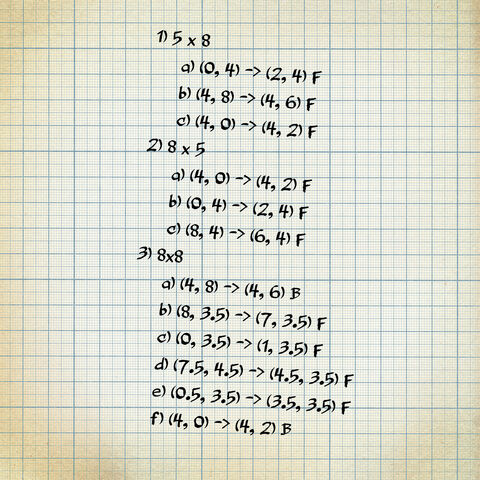 1) 5 x 8
a) (0, 4) -> (2, 4) F
b) (4, 8) -> (4, 6) F
c) (4, 0) -> (4, 2) F
2) 8 x 5
a) (4, 0) -> (4, 2) F
b) (0, 4) -> (2, 4) F
c) (8, 4) -> (6, 4) F
3) 8x8
a) (4, 8) -> (4, 6) B
b) (8, 3.5) -> (7, 3.5) F
c) (0, 3.5) -> (1, 3.5) F
d) (7.5, 4.5) -> (4.5, 3.5) F
e) (0.5, 3.5) -> (3.5, 3.5) F
f) (4, 0) -> (4, 2) B